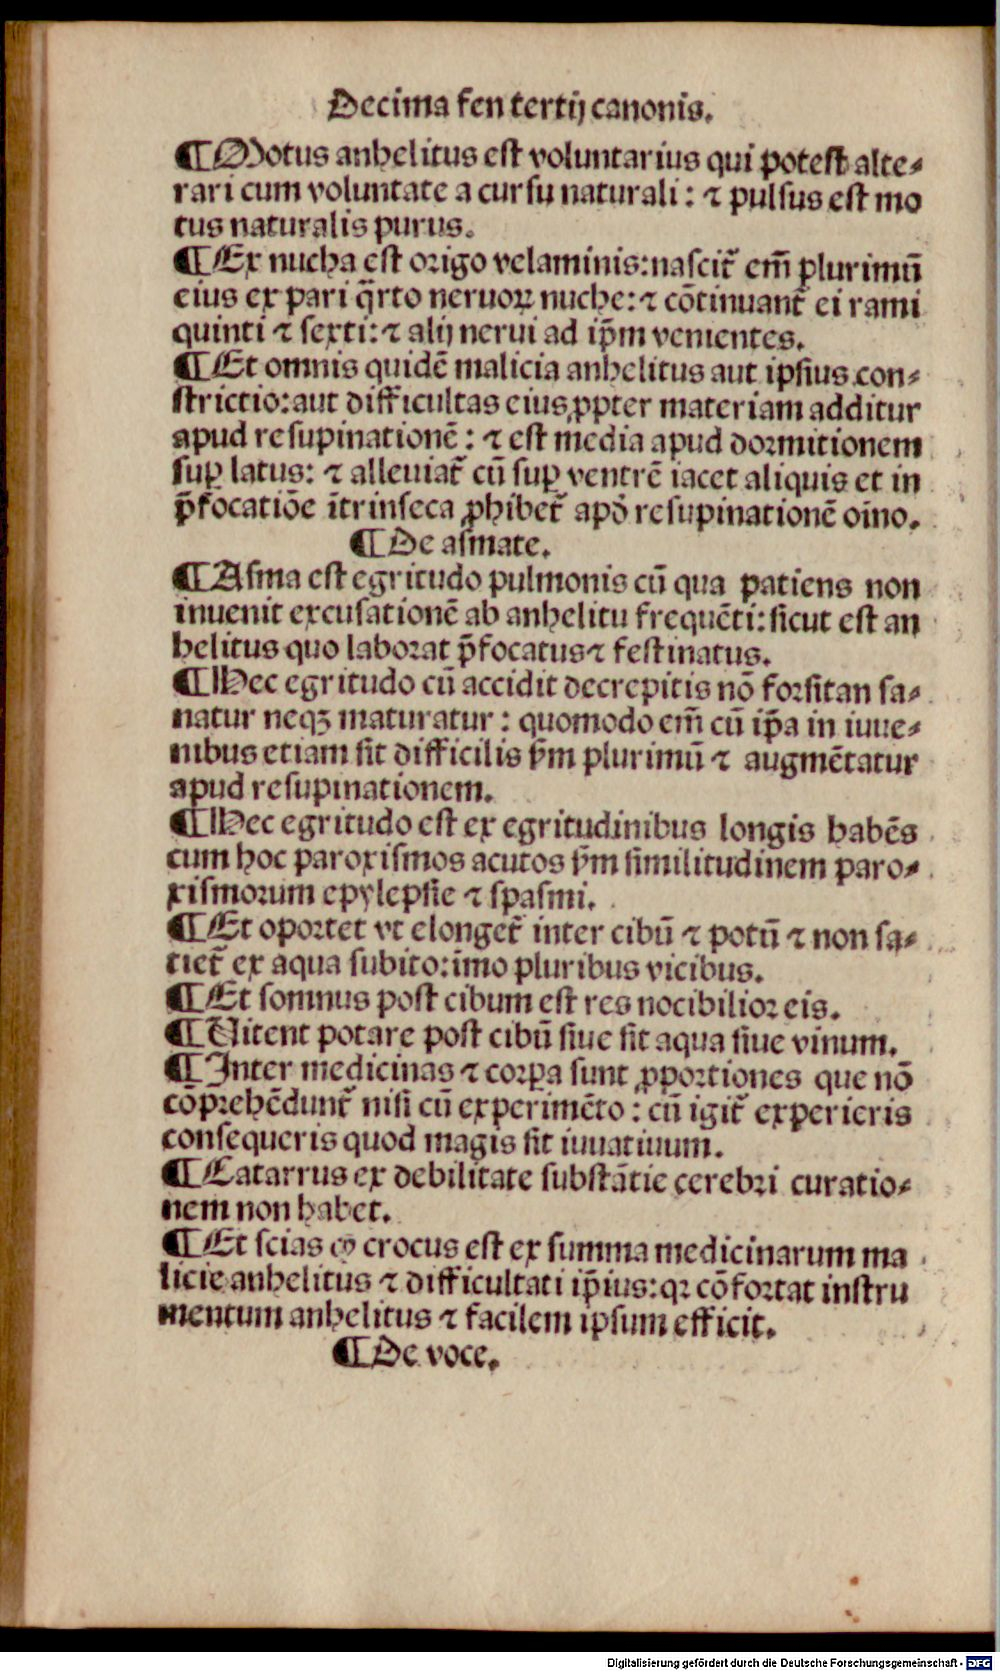 Decima fen tertij canonis.
¶Motus anhelitus est voluntarius qui potest alte⸗
rari cum voluntate a cursu naturali: ⁊ pulsus est mo
tus naturalis purus.
¶Ex nucha est origo velaminis: nascit᷑ em̄ plurimū
eius ex pari q̄rto neruoꝝ nuche: ⁊ cōtinuant᷑ ei rami
quinti ⁊ sexti: ⁊ alij nerui ad ip̄m venientes.
¶Et omnis quidē malicia anhelitus aut ipsius con⸗
strictio: aut difficultas eius ꝓpter materiam additur
apud resupinationē: ⁊ est media apud dormitionem
suꝑ latus: ⁊ alleuiat᷑ cū suꝑ ventrē iacet aliquis et in
p̄focatiōe ītrinseca ꝓhibet᷑ apd̕ resupinationē oīno.
¶De asmate.
¶Asma est egritudo pulmonis cū qua patiens non
inuenit excusationē ab anhelitu frequēti: sicut est an
helitus quo laborat p̄focatus ⁊ festinatus.
¶Hec egritudo cū accidit decrepitis nō forsitan sa⸗
natur neqꝫ maturatur: quomodo em̄ cū ip̄a in iuue⸗
nibus etiam sit difficilis ẜm plurimū ⁊ augmētatur
apud resupinationem.
¶Hec egritudo est ex egritudinibus longis habēs
cum hoc paroxismos acutos ẜm similitudinem paro⸗
xismorum epylepsie ⁊ spasmi.
¶Et oportet vt elonget᷑ inter cibū ⁊ potū ⁊ non sa⸗
tiet᷑ ex aqua subito: īmo pluribus vicibus.
¶Et somnus post cibum est res nocibilior eis.
¶Uitent potare post cibū siue sit aqua siue vinum.
¶Inter medicinas ⁊ corꝑa sunt ꝓportiones que nō
cōprehēdunt᷑ nisi cū experimēto: cū igit᷑ experieris
consequeris quod magis sit iuuatiuum.
¶Catarrus ex debilitate substātie cerebri curatio⸗
nem non habet.
¶Et scias ꝙ crocus est ex summa medicinarum ma
licie anhelitus ⁊ difficultati ip̄ius: qꝛ cōfortat instru
mentum anhelitus ⁊ facilem ipsum efficit.
¶De voce.
Digitalisierung gefördert durch die Deutsche Forschungsgemeinschaft - DFG